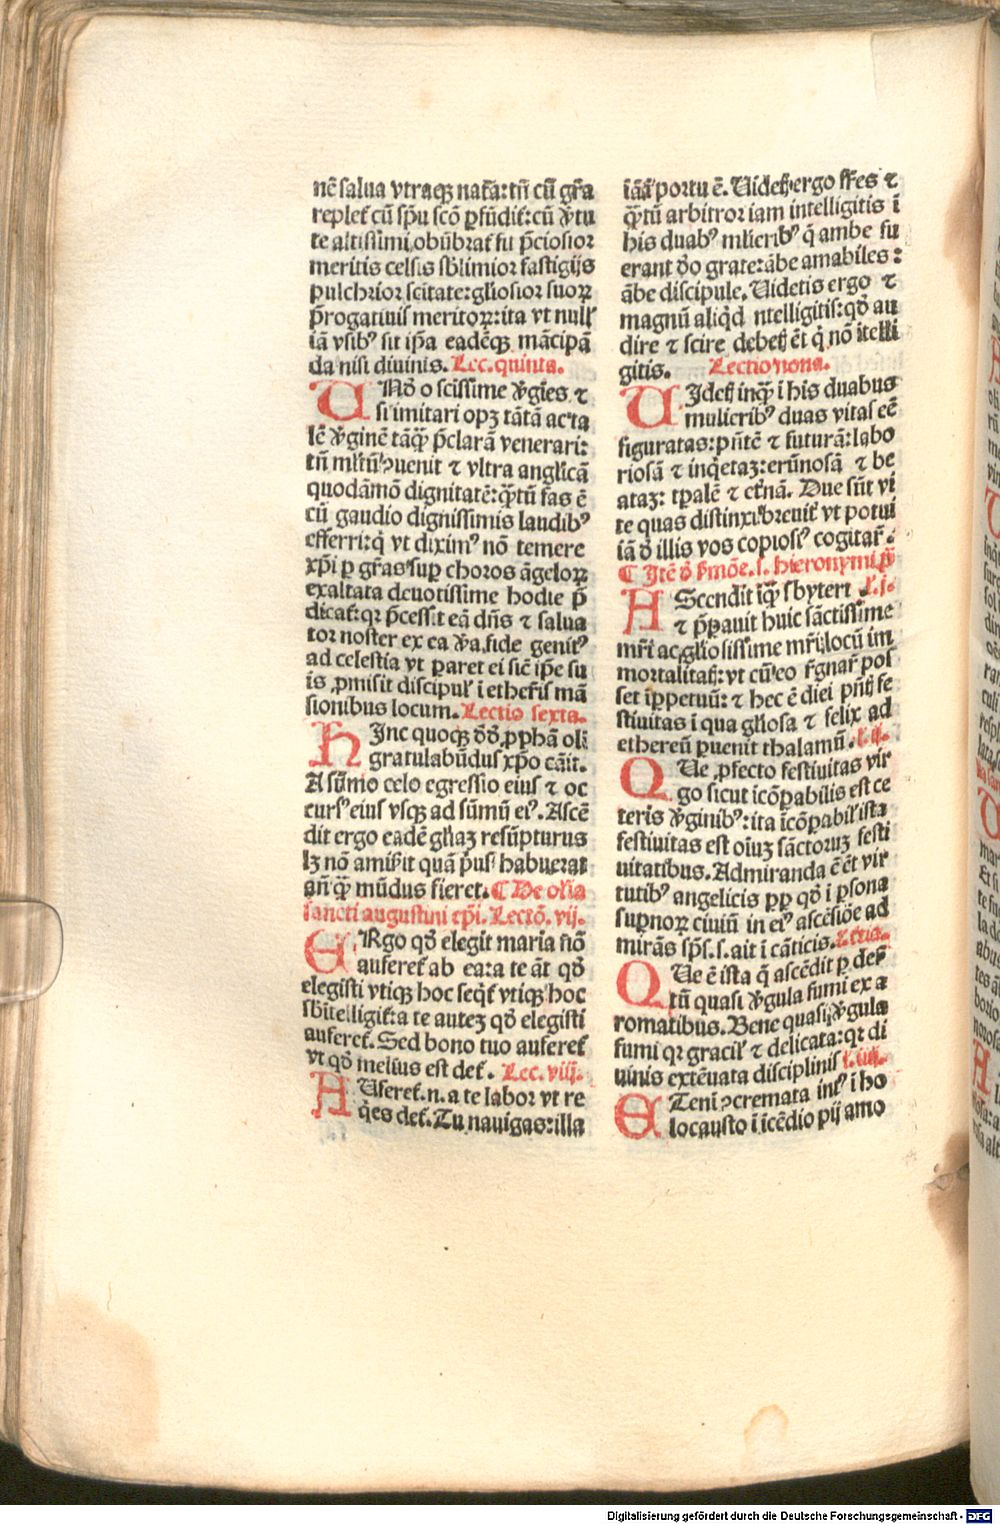 nē salua vtraqꝫ nat̄a: tn̄ cū gr̄a
replet᷑ cū sp̄u scō ꝑfūdit᷑: cū v̓tu
te altissimi obūbrat᷑ fit p̄ciosior
meritis celsis sb̓limior fastigijs
pulchrior scītate: gl̓iosior suoꝝ
p̄rogatiuis meritoꝝ: ita vt null᷑
iā vsibꝰ sit ip̄a eadēqꝫ mācipa
da nisi diuinis. Lec. quinta.
si imitari opꝫ tātā ac ta
lē v̓ginē tāq̄ꝫ p̄clarā venerari:
quodāmō dignitatē: q̄ꝫtū fas ē
cū gaudio dignissimis laudibꝰ
efferri: q̓ vt diximꝰ nō temere
xp̄i ꝑ gr̄as suꝑ choros āgeloꝝ
exaltata deuotissime hodie p̄
dicat᷑: qꝛ p̄cessit eā dn̄s ⁊ salua
tor noster ex ea v̓a fide genitꝰ
ad celestia vt ꝑaret ei sic̄ ip̄e su
is ꝓmisit discipul᷑ ī etheris mā
sionibus locum. Lectio sexta.
HInc quoqꝫ dd̄ ꝓphā oli
gratulabūdus xp̄o cāit.
A sūmo celo egressio eius ⁊ oc
cursꝰ eius vsqꝫ ad sūmū eiꝰ. Ascē
dit ergo eadē gl̓iaꝫ resūpturus
lꝫ nō amisit quā p̓us habuerat
an̄q̄ꝫ mūdus fieret. ¶ De om̓lia
sancti augustini ep̄i. Lectō. vij.
ERgo qd̓ elegit maria nō
auferet᷑ ab ea: a te āt qd̓
elegisti vtiqꝫ hoc seq̓t᷑ vtiqꝫ hoc
sb̓itelligit᷑: a te auteꝫ qd̓ elegisti
auferet᷑. Sed bono tuo auferet᷑
vt qd̓ melius est det᷑. Lec. viij.
AUferet᷑. n. a te labor vt re
q̓es det᷑. Tu nauigas: illa
iā ī portu ē. Uidet᷑ ergo fr̄es ⁊
q̄ꝫtū arbitror iam intelligitis ī
his duabꝰ ml̓ieribꝰ q̄ ambe fu
erant dn̄o grate: ābe amabiles:
ābe discipule. Uidetis ergo ⁊
magnū aliq̓d ntelligitis: qd̓ au
dire ⁊ scire debet᷑ ēt q̓ nō ītelli
gitis. Lectio nona.
UIdet᷑ inq̄ꝫ ī his duabus
mulieribꝰ duas vitas eē
figuratas: pn̄tē ⁊ futurā: labo
riosā ⁊ inq̓etaꝫ: erūnosā ⁊ be
ataꝫ: tp̄alē ⁊ et̓nā. Due sūt vi
te quas distinxi breuit̓ vt potui
iā d̓ illis vos copiosiꝰ cogitar̄.
¶ Itē d̓ s̓mōe. s. hieronymi pr̄
AScendit īq̄ꝫ sbyteri . L. j.
⁊ p̄ꝑauit huic sāctissime
mr̄i ac gl̓iosissime mr̄i locū im
mortalitat᷑: vt cū eo r̓gnar̄ pos
set īꝑpetuū: ⁊ hec ē diei pn̄t᷑ fe
stiuitas ī qua gl̓iosa ⁊ felix ad
ethereū ꝑuenit thalamū. L. ij.
QUe ꝓfecto festiuitas vir
go sicut īcōꝑabilis est ce
teris v̓ginibꝰ: ita īcōꝑabil᷑ ista
festiuitas est oīuꝫ sāctoruꝫ festi
uitatibus. Admiranda ē ēt vir
tutibꝰ angelicis ꝓp qd̓ ī ꝑsona
suꝑnoꝝ ciuiū in eiꝰ ascēsiōe ad
mirās sp̄s. s. ait ī cāticis. L. iij.
QUe ē ista q̄ ascēdit ꝑ deser
tū quasi v̓gula fumi ex a
romatibus. Bene quasi v̓gula
fumi qꝛ gracil᷑ ⁊ delicata: qꝛ di
uinis extēuata disciplinis L. iiij.
ETenī ꝯcremata intꝰ ī ho
locausto ī īcēdio pij amo
Digitalisierung gefördert durch die Deutsche Forschungsgemeinschaft - DFG